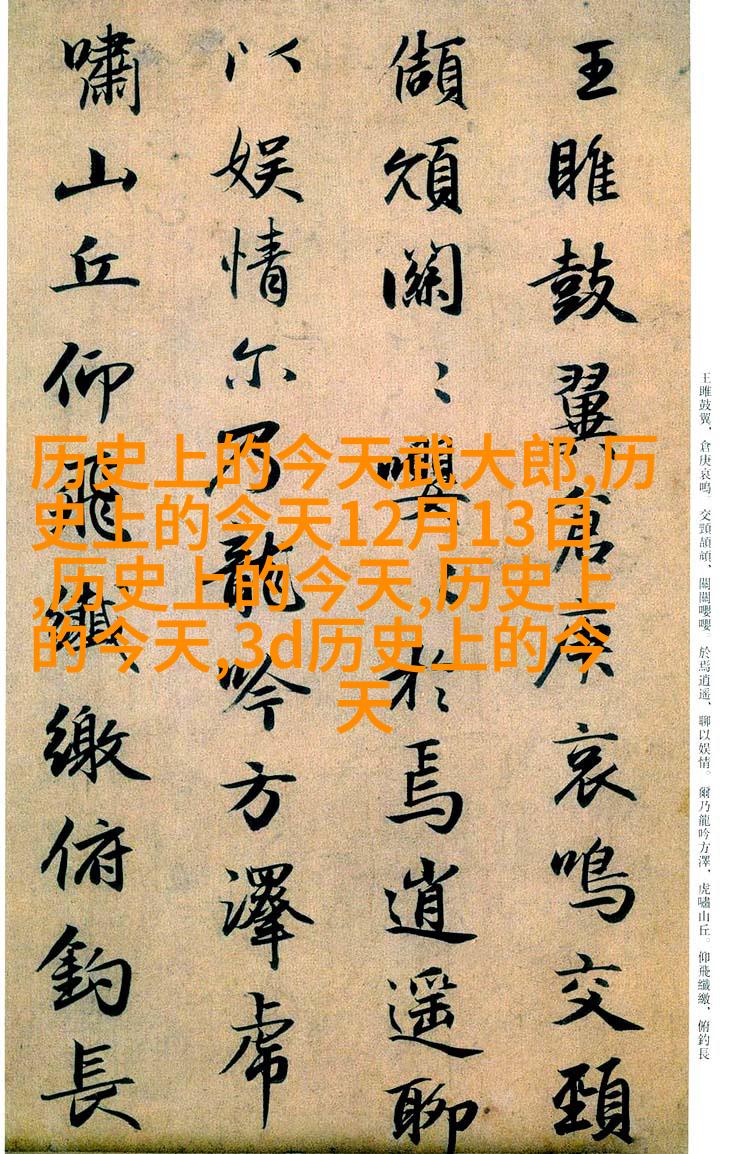 王雎鼓翼倉庚哀鳴交頸
頡頏關〻嚶〻於焉逍遥聊
以娱情尔乃龍吟方澤虎
嘯山丘仰飛纖繳俯釣長
王雎鼓翼、倉庚哀鳴。交頸頡頏、關關嚶嚶。於焉逍遥、聊以娱情。爾乃龍吟方澤、虎嘯山丘。仰飛纖繳、俯釣長
历史上的今天武大郎,历
史上的今天12月13日
,历史上的今天,历史上
的今天,3d历史上的今
天